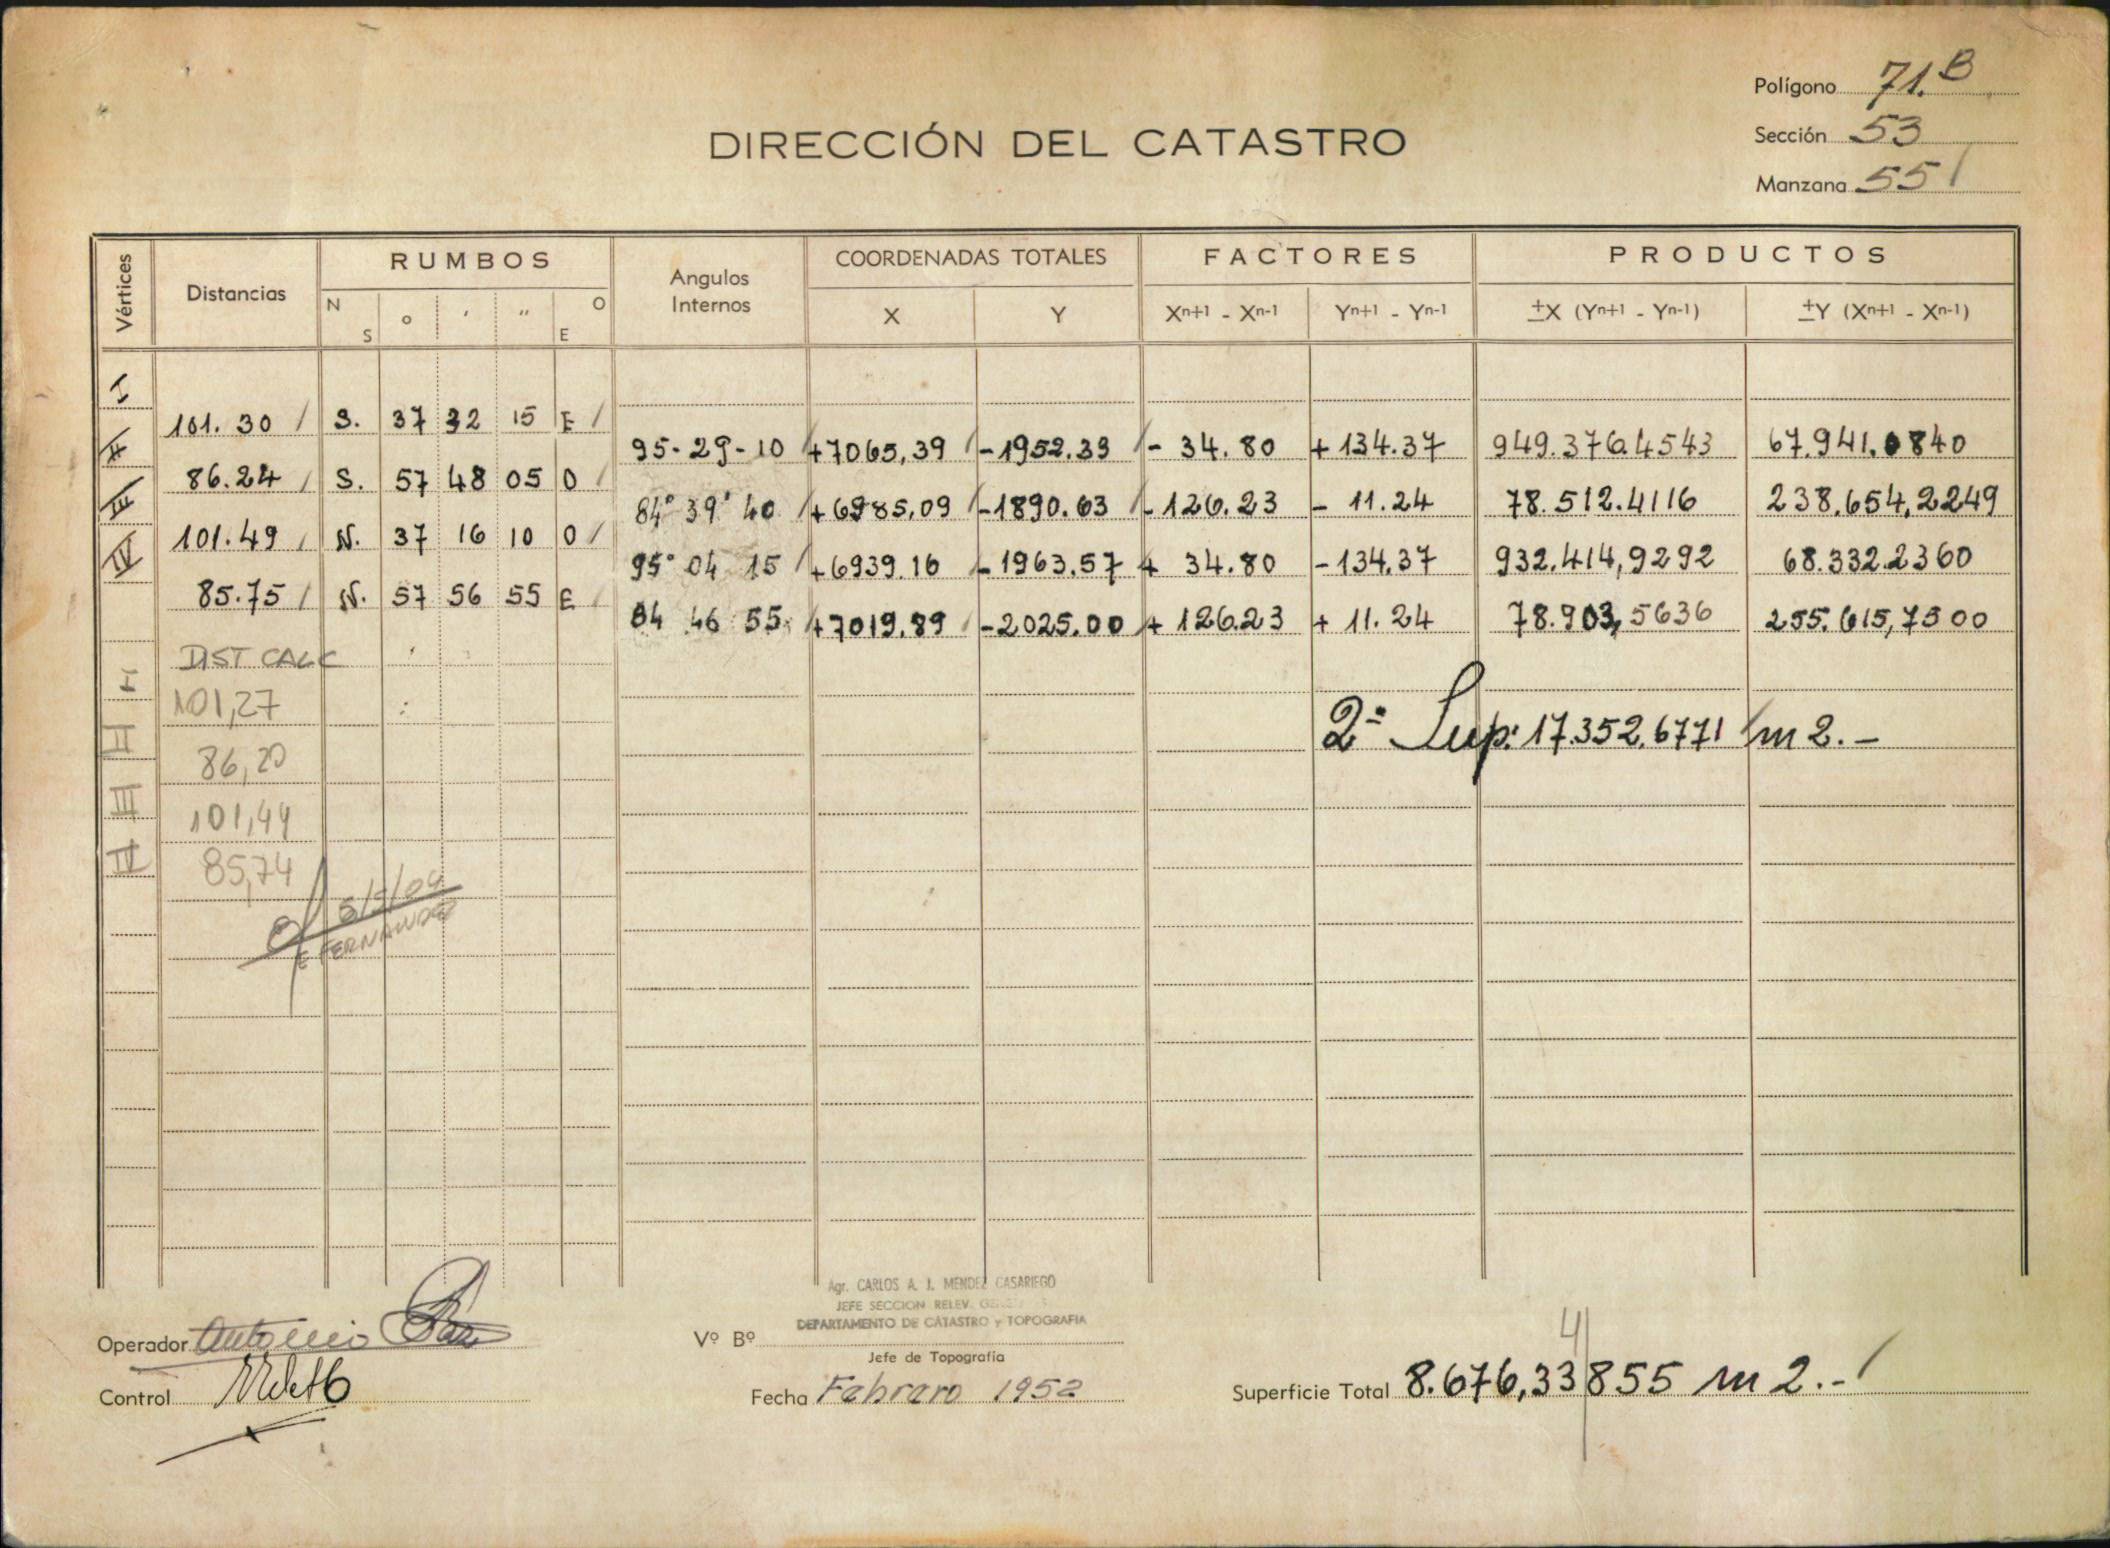 Polígono 71.B
Sección 53
Manzana 55
DIRECCIÓN DEL CATASTRO
Vértices Distancias RUMBOS Angulos Internos COORDENADAS TOTALES FACTORES PRODUCTOS
N S o ' '' O E X Y Xn+1 - Xn-1 Yn+1 - Yn-1 ±X (Yn+1 - Yn-1) ±Y (Xn+1 - Xn-1)
I
101.30 / S. 37 32 15 E /
II 95-29-10 / +7065,39 / -1952.39 / - 34.80 +134.37 949.376.4543 67.941.0840
86.24 / S. 57 48 05 O /
III 84° 39' 40 / +6985,09 / -1890.63 / -126.23 - 11.24 78.512.4116 238.654,2249
101.49 / N. 37 16 10 O /
IV 95° 04 15 / +6939.16 / -1963.57 + 34.80 -134.37 932.414,9292 68.332.2360
85.75 / N. 57 56 55 E /
84 46 55 / +7019.89 / -2025.00 / + 126.23 + 11.24 78.903,5636 255.615,7500
DIST CALC
I 101,27
II 86,20
III 101,44
IV 85,74
2ª Sup: 17.352.6771 / m 2.-
E FERNANDEZ
Agr. CARLOS A. J. MENDEZ CASARIEGO
JEFE SECCION RELEV.
DEPARTAMENTO DE CATASTRO y TOPOGRAFIA
Operador Antonio
Vº Bº
Jefe de Topografía
Control
Fecha Febrero 1952
4
Superficie Total 8.676,33855 m 2.- /